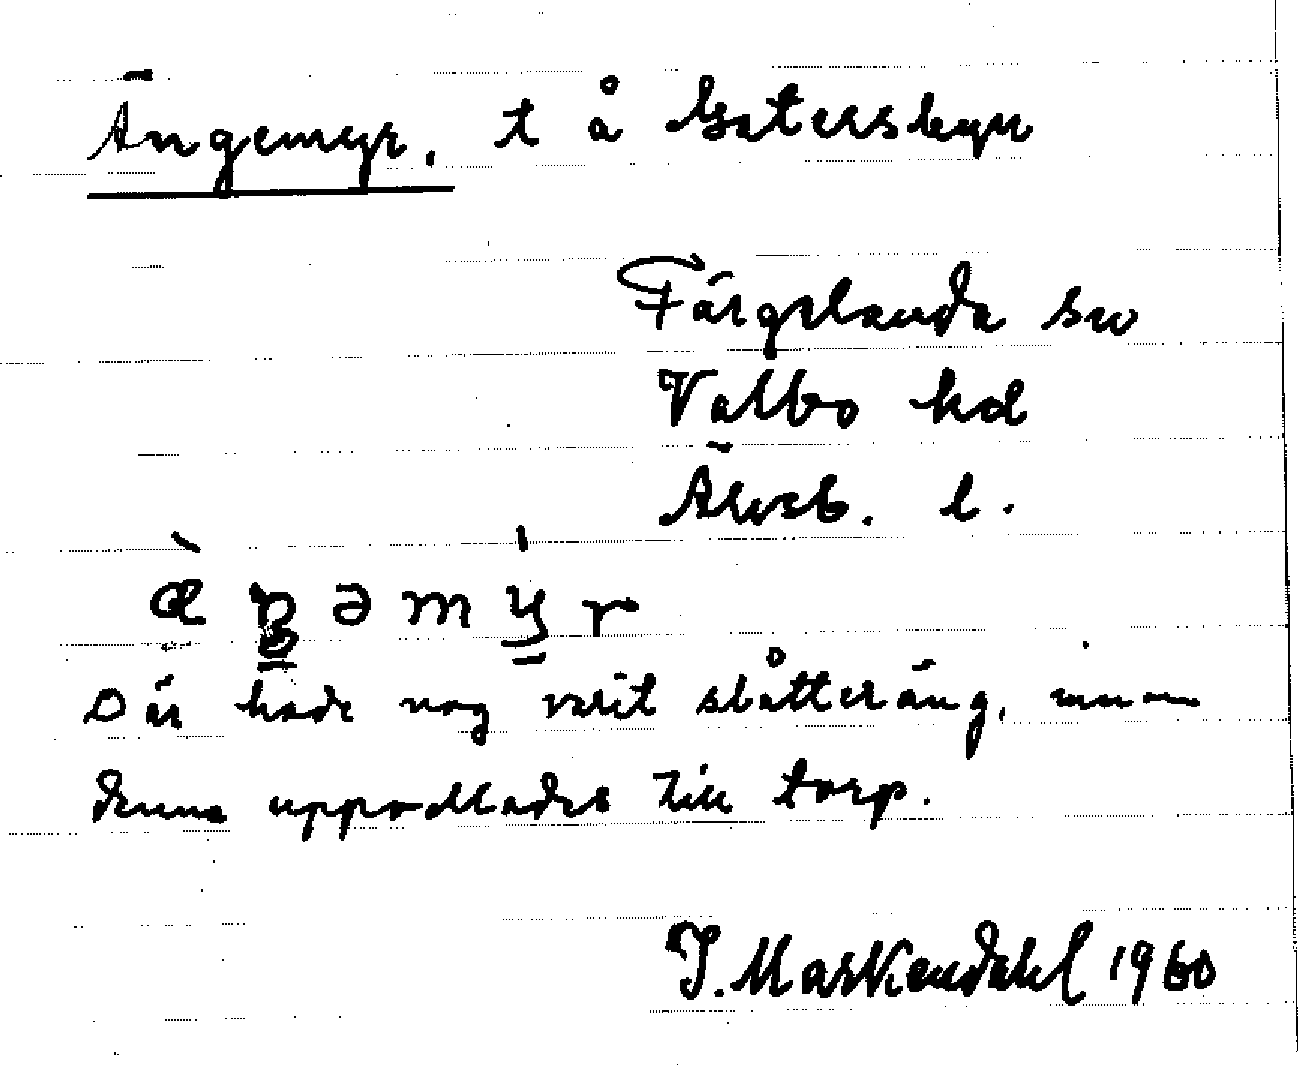 Ängemyr, t å Gatersbyn
Färgelanda sn
Valbo hd
Älvsb. l.
Där hade nog varit slåtteräng, innan
denna uppodlades till torp.
J. Maskendahl 1960